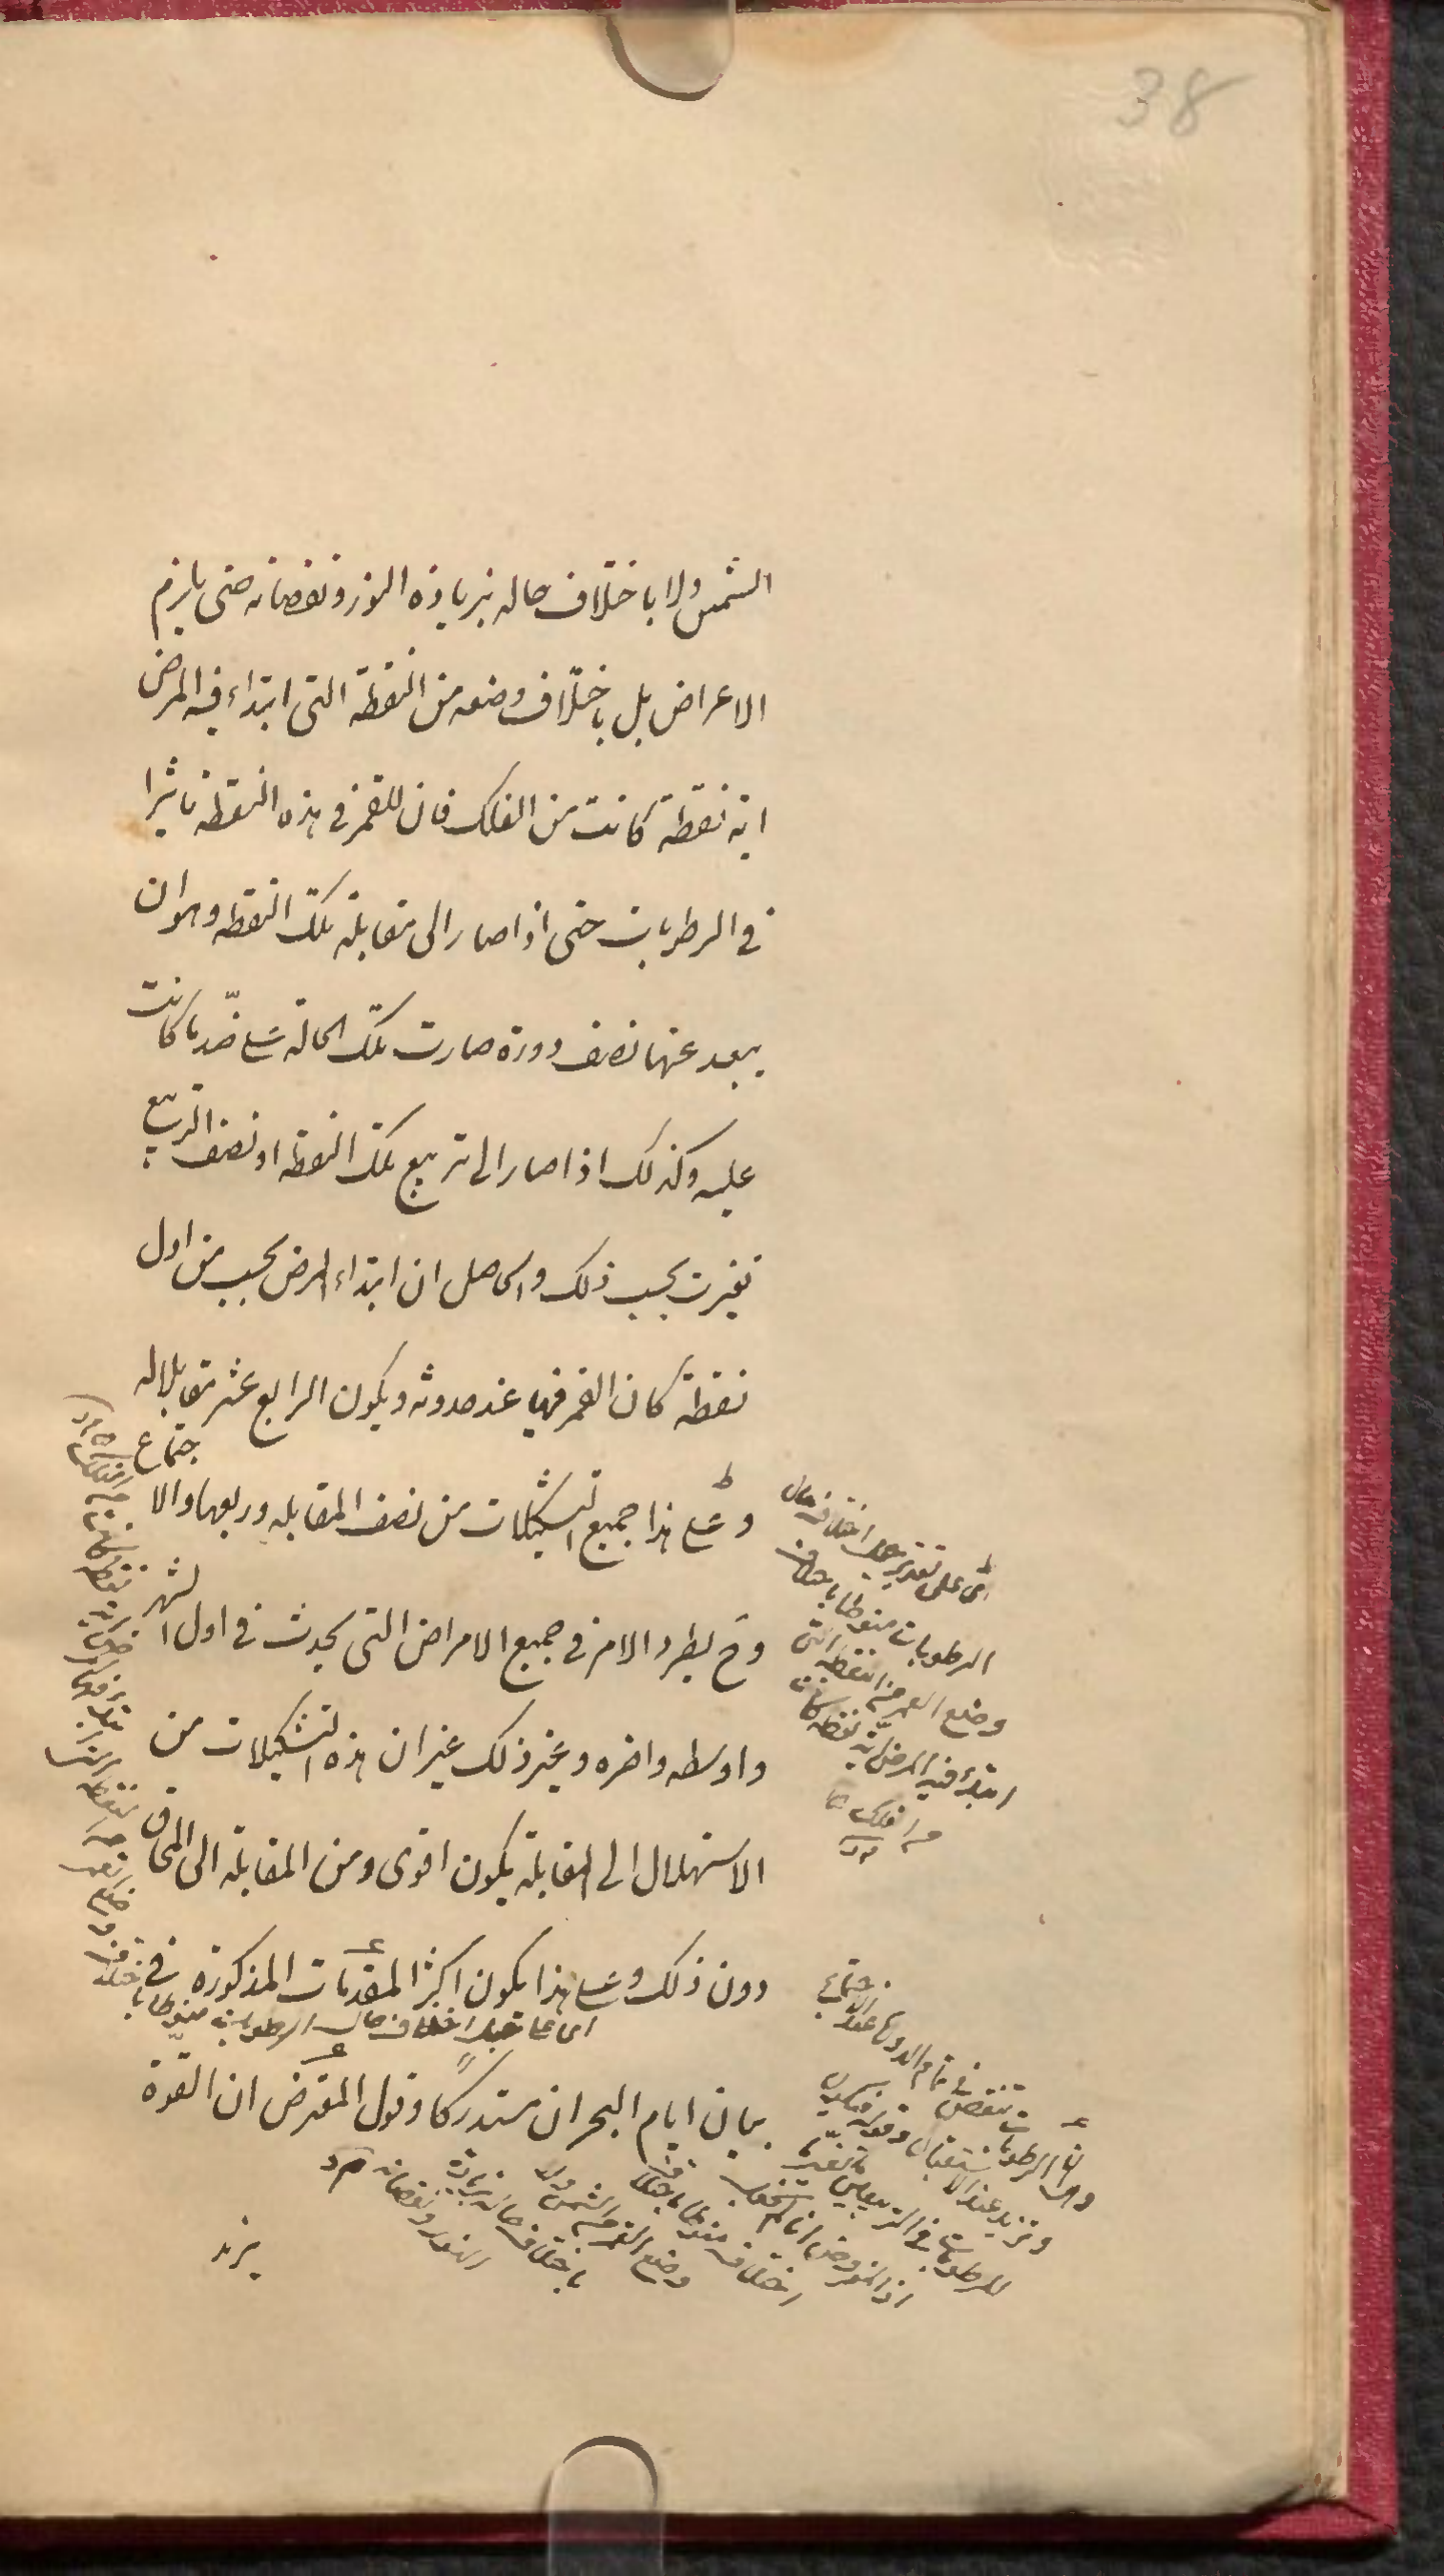 38
الشمس ولا باختلاف حاله بزيادة النور ونقصانه حتى يلزم
الاعراض بل باختلاف وضعه من النقطة التى ابتداء فيه المرض
اية نقطة كانت من الفلك فان للقمر فى هذه النقطة تاثيرا
فى الرطوبات حتى اذا صار الى مقابلة تلك النقطه وهو ان
يبعد عنها نصف دورة صارت تلك الحالة على ضد ما كانت
عليه وكذلك اذا صار الى تربيع تلك النقطه او نصف التربيع
تغيرت بحسب ذلك والحاصل ان ابتداء المرض يحسب من اول
نقطة كان القمر فيها عند حدوثه ويكون الرابع عشر مقابلا له
وعلى هذا جميع التشكيلات من نصف المقابله وربعها والاجتماع
وح يطرد الامر فى جميع الامراض التى يحدث فى اول الشهر
واوسطه واخره وغير ذلك غير ان هذه التشكيلات من
الاستهلال الى المقابلة يكون اقوى ومن المقابلة الى المحاق
دون ذلك وعلى هذا يكون اكثر المقدمات المذكورة فى
بيان ايام البحران مستدركا وقول المعترض ان القوة
يزيد
اى على تقدير جعل اختلاف حال
الرطوبات منوطا باختلاف
وضع القمر من النقطة التى
ابتدأ فيه المرض اية نقطة كانت
من الفلك
فى تمام الدورة عند الاجتماع
وتزيد عند الاستقبال
للرطوبات فى التربيعين
وضع القمر من الشمس ولا
باختلاف حاله بزيادة
النور ونقصانه